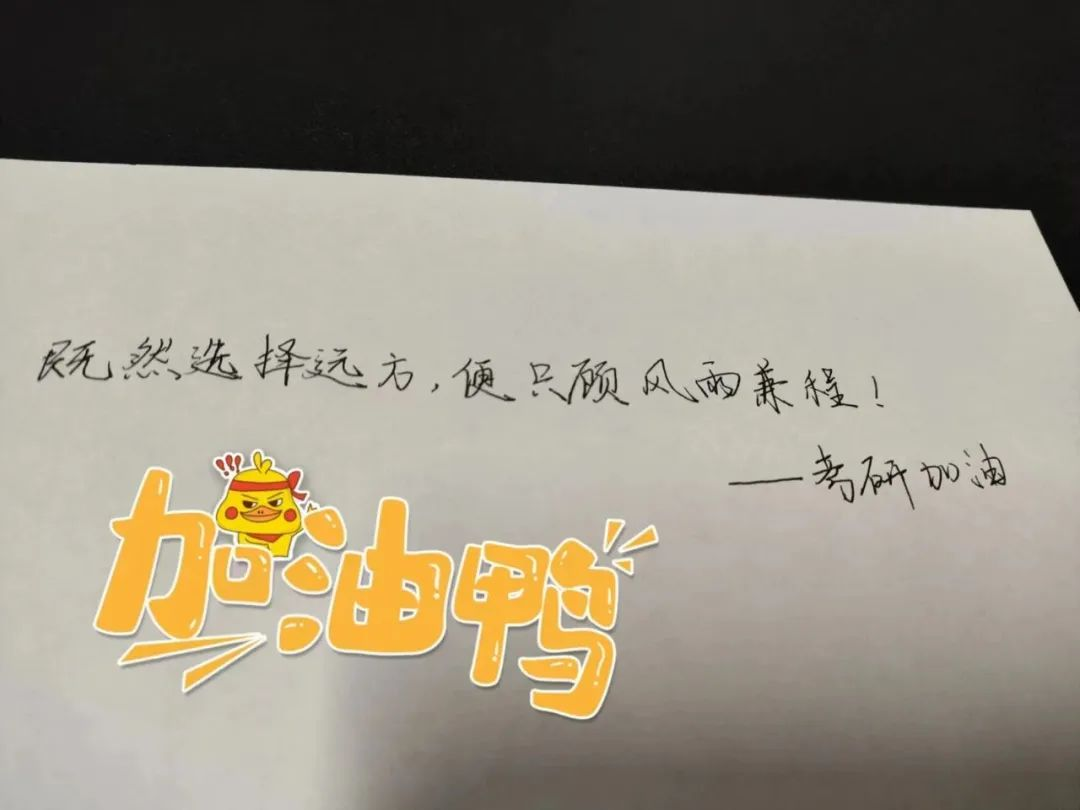 既然选择远方，便只顾风雨兼程！
——考研加油
!!!
加油鸭